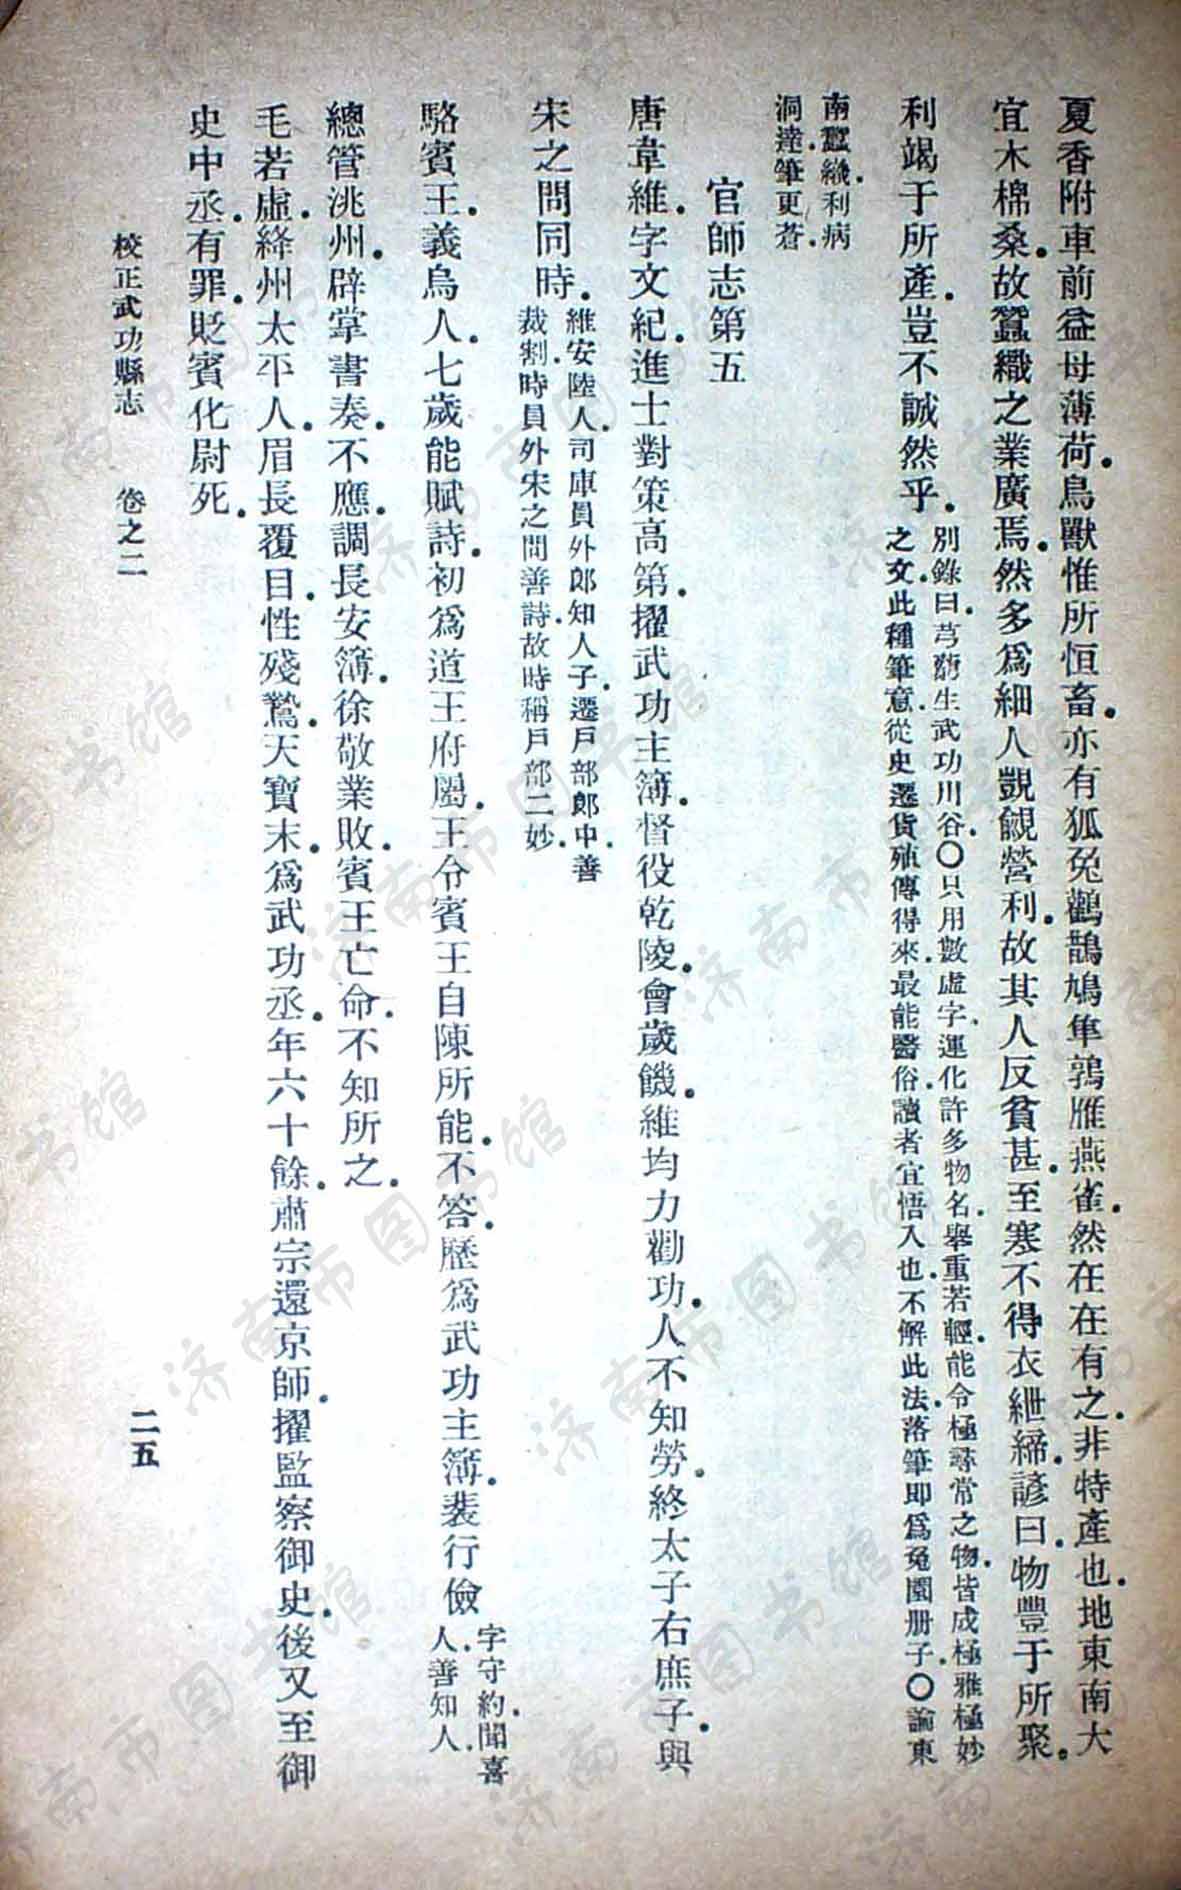 夏香附車前益母薄荷鳥獸惟所恒畜亦有狐兔鸛鵲鳩隼鶉雁燕雀然在在有之非特產也地東南大
宜木棉桑故蠶織之業廣焉然多爲細人覬覦營利故其人反貧甚至寒不得衣紲締諺曰物豐于所聚
利竭于所產豈不誠然乎
別錄曰芎藭生武功川谷〇只用數虛字運化許多物名舉重若輕能令極尋常之物皆成極雅極妙
之文此種筆意從史遷貨殖傳得來最能醫俗讀者宜悟入也不解此法落筆即爲兔園册子〇論東
南蠶織利病
洞達筆更蒼
官師志第五
唐韋維字文紀進士對策高第擢武功主簿督役乾陵會歲饑維均力勸功人不知勞終太子右庶子與
宋之問同時
維安陸人司庫員外郎知人子遷戶部郎中善
裁割時員外宋之問善詩故時稱戶部二妙
駱賓王義烏人七歲能賦詩初爲道王府屬王令賓王自陳所能不答歷爲武功主簿裴行儉
字守約聞喜
人善知人
總管洮州辟掌書奏不應調長安簿徐敬業敗賓王亡命不知所之
毛若虛絳州太平人眉長覆目性殘鷙天寶末爲武功丞年六十餘肅宗還京師擢監察御史後又至御
史中丞有罪貶賓化尉死
校正武功縣志 卷之二
二五